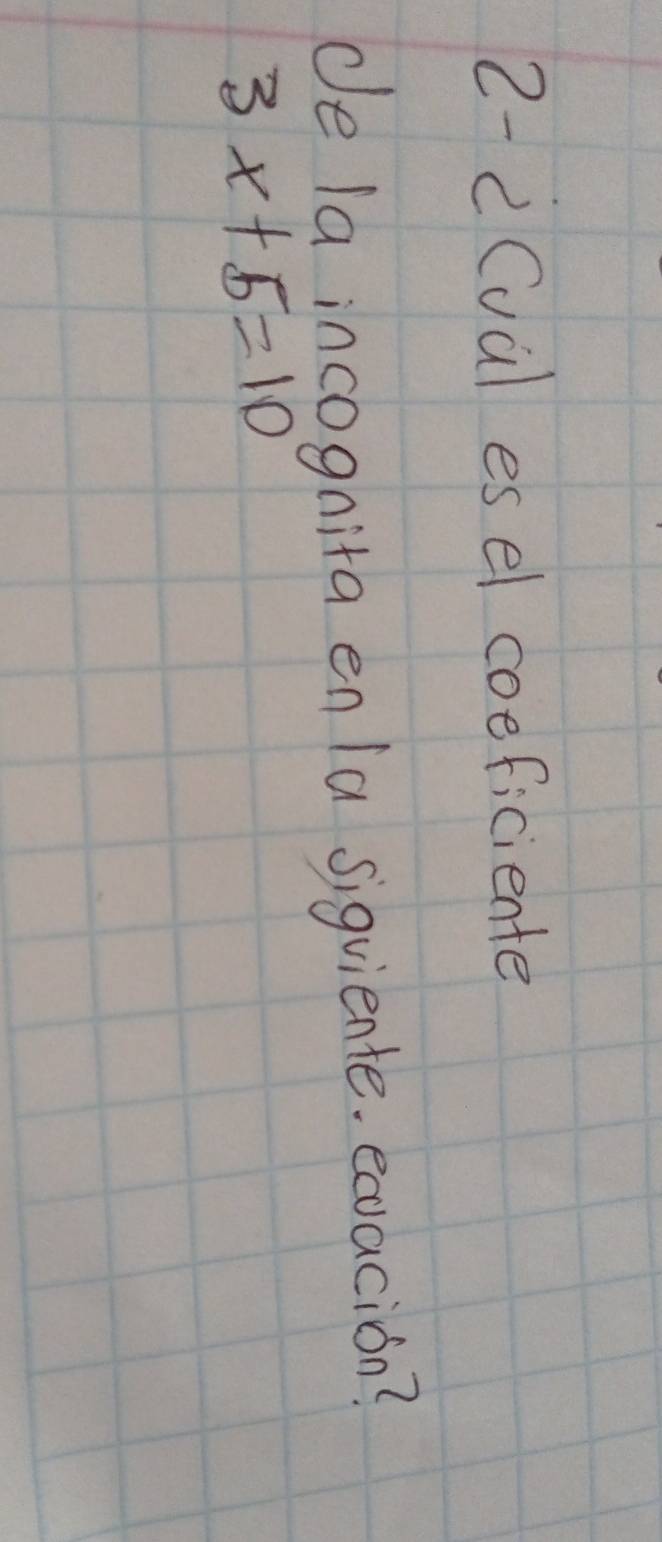 2-¿Cuál es el coeficiente
de la incognita en la siguiente. ecuación?
3x+5=10